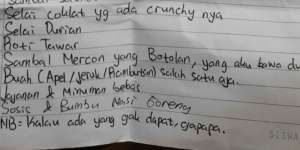 Selai coklat yg ada crunchy nya
Selai Durian
Roti Tawar
Sambal Mercon yang Botolan, yang aku bawa du
Buah (Apel / Jeruk / Rambutan) salah satu aja.
Jajanan & Minuman bebas
Sosis & Bumbu Nasi Goreng
NB = Kalau ada yang gak dapat, gapapa.